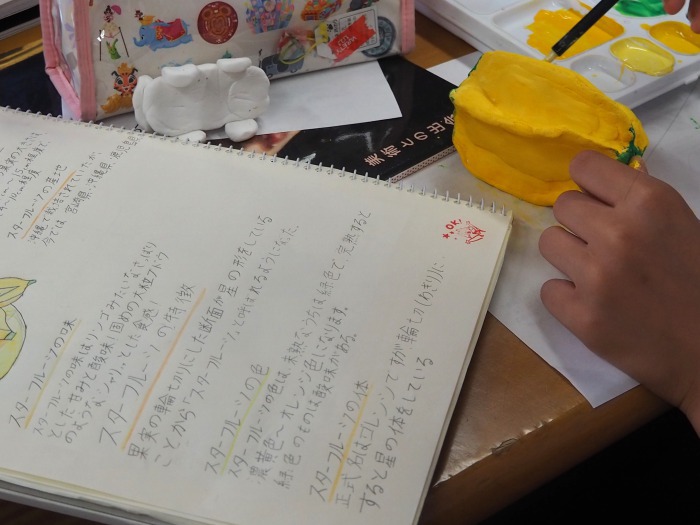 スターフルーツの産地
沖縄で栽培されていたが、
今では、宮崎県、沖縄県、鹿児島
スターフルーツの味
スターフルーツの味はリンゴみたいなさっぱり
とした甘みと酸味!固めの大粒ブドウ
のようなシャリッとした食感!
スターフルーツの特徴
果実の輪切りにした断面が星の形をしている
ことから「スターフルーツ」と呼ばれるようになった。
スターフルーツの色
スターフルーツの色は、未熟なうちは緑色で完熟すると
濃黄色〜オレンジ色になります。
緑色のものは酸味がある。
スターフルーツの体
正式名はゴレンシですが輪切り(よこぎり)に
すると星の体をしている
OK
美術との出会